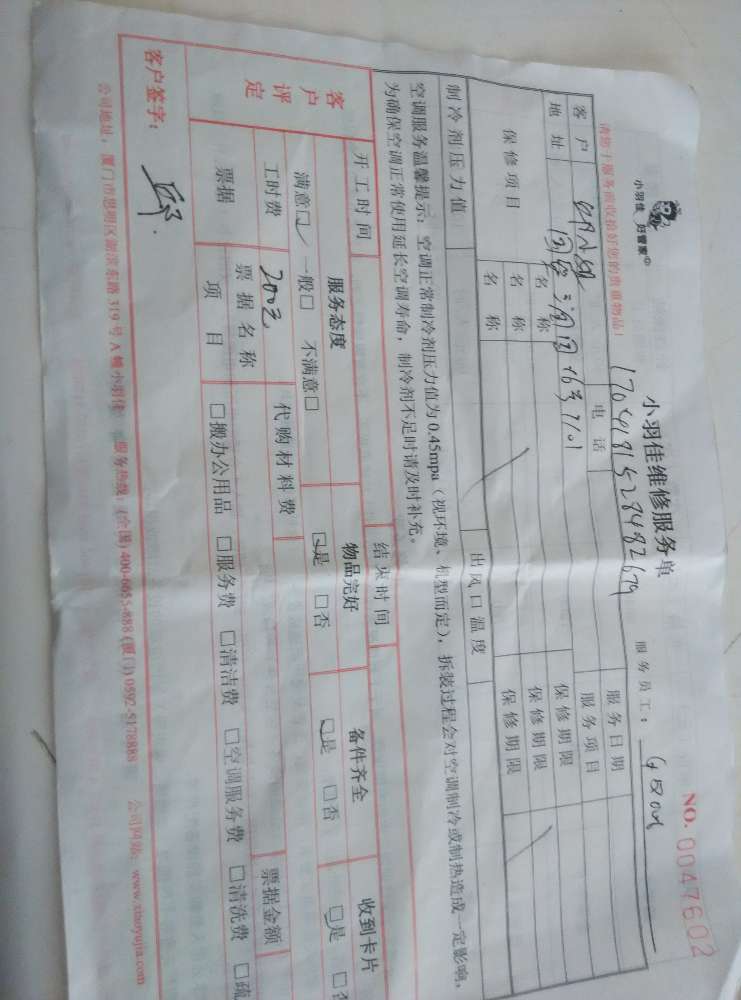 小羽佳 好管家
小羽佳维修服务单
NO. 0047602
请您于服务前收拾好您的贵重物品!
服务员工:
客户
电话
服务日期
地址
服务项目
保修项目
名称
保修期限
名称
保修期限
名称
保修期限
制冷剂压力值
出风口温度
空调服务温馨提示:空调正常制冷剂压力值为 0.45mpa(视环境、机型而定),拆装过程会对空调制冷或制热造成一定影响,
为确保空调正常使用延长空调寿命,制冷剂不足时请及时补充。
开工时间
结束时间
客户评定
服务态度
物品完好
备件齐全
收到卡片
满意☑ 一般□ 不满意□
☑是 □否
☑是 □否
□是 □否
工时费
200元
代购材料费
票据金额
票据
票据名称
项目
□搬办公用品 □服务费 □清洁费 □空调服务费 □清洗费 □疏
客户签字:
公司地址:厦门市思明区湖滨东路 319 号 A 幢小羽佳 服务热线:(全国) 400-6055-888 (厦门) 0592-5178888 公司网站:www.xiaoyujia.com